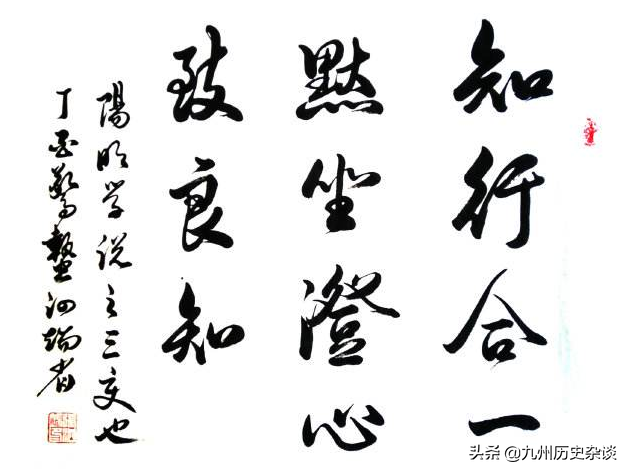 知行合一
默坐澄心
致良知
陽明学说之三变也
丁酉驚蟄
头条 @九州历史杂谈